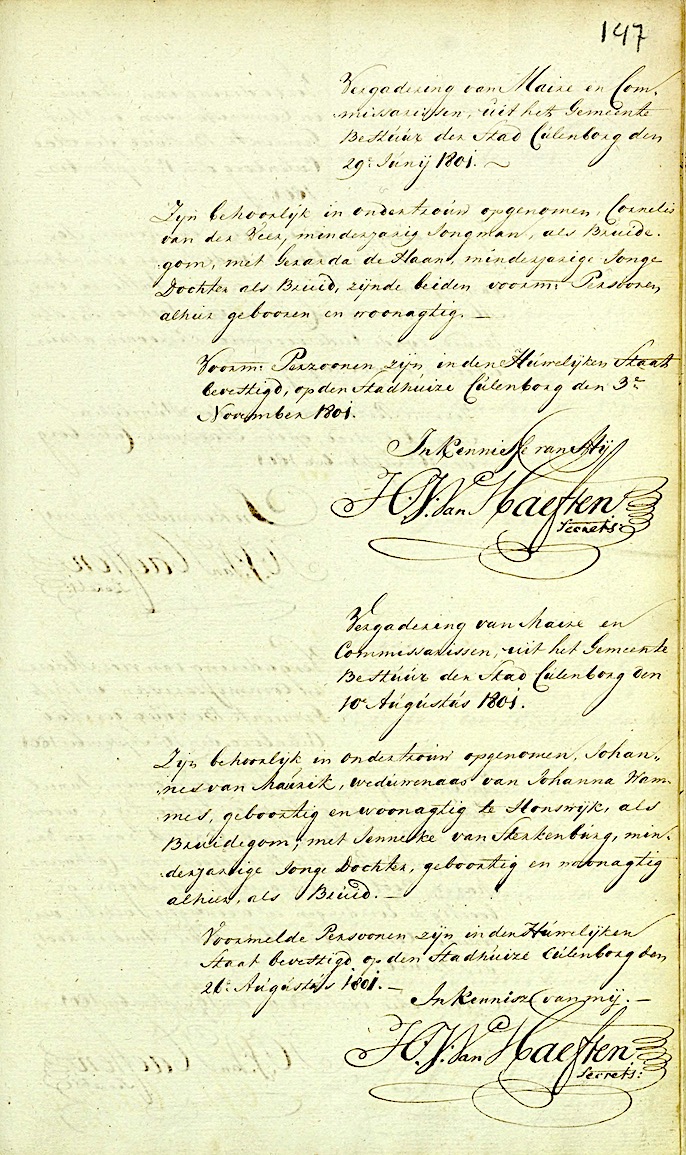 147
Vergadering van Maire en Com„
missarissen, uit het Gemeente
Bestúúr der Stad Cúlenborg den
29e Júnij 1801. ~
Zijn behoorlijk in ondertrouw opgenomen, Cornelis
van der Veer, minderjarig Jongman, als Bruide„
gom, met Gerarda de Haan, minderjarige Jonge
Dochter als Brúid, zijnde beiden voorm: Persoonen,
alhier gebooren en woonagtig. —
Voorm: Perzoonen zijn in den Húwelijken Staat
bevestigd, op den Stadhuize Cúlenborg den 3e
November 1801.
In Kennisse van Mij
H. J. Van Haeften
Secrets:
Vergadering van Maire en
Commissarissen, uit het Gemeente
Bestúúr der Stad Cúlenborg den
10e Aúgústús 1801.
Zijn behoorlijk in ondertrouw opgenomen, Johan„
„nes van Maúrik, weduwenaar van Johanna Ham„
mes, geboortig en woonagtig te Honswijk, als
Brúidegom, met Jenneke van Sterkenbúrg, min„
derjarige Jonge Dochter, geboortig en woonagtig
alhier, als Brúid. —
Voormelde Persoonen zijn in den Húwelijken
Staat bevestigd op den Stadhúize Cúlenborg den
26e Aúgústús 1801. —
In Kennisse van mij. —
H. J. Van Haeften
Secrets: